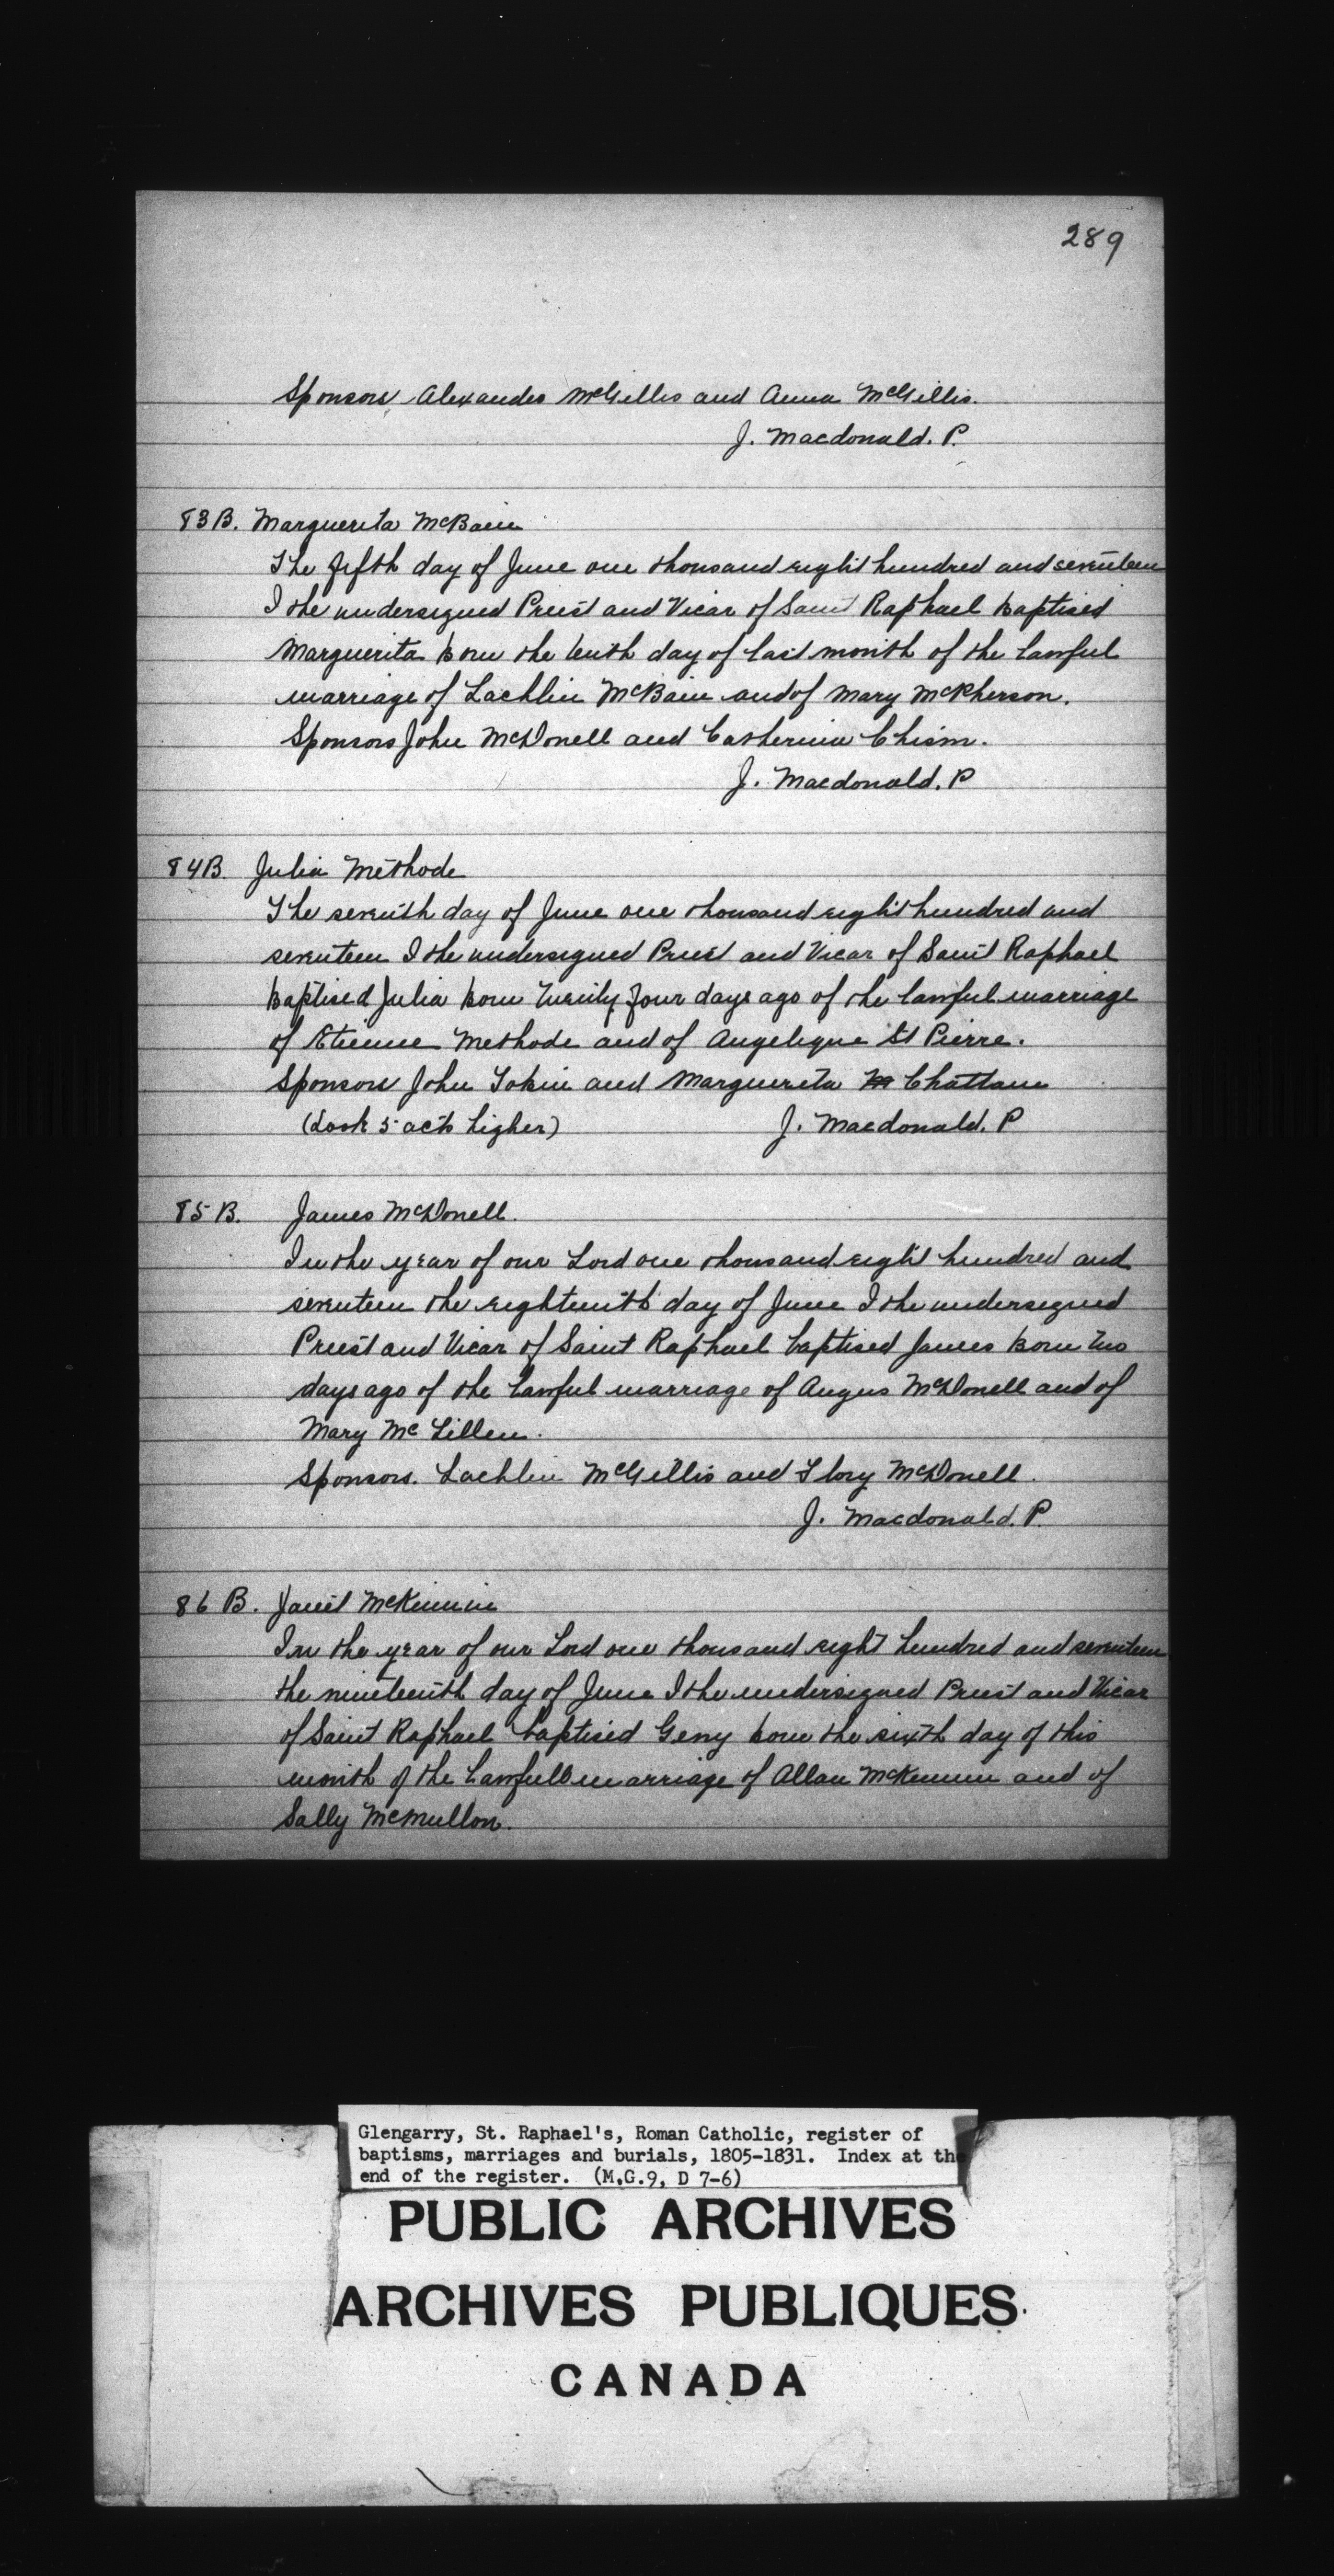 289
Sponsors Alexander McGillis and Anna McGillis.
J. Macdonald. P.
83B. Marguerita McBain
The fifth day of June one thousand eight hundred and seventeen
I the undersigned Priest and Vicar of Saint Raphael baptised
Marguerita born the tenth day of last month of the lawful
marriage of Lachlin McBain and of Mary McPherson.
Sponsors John McDonell and Catherina Chism.
J. Macdonald. P
84B. Julia Methode
The seventh day of June one thousand eight hundred and
seventeen I the undersigned Priest and Vicar of Saint Raphael
baptised Julia born twenty four days ago of the lawful marriage
of Etienne Methode and of Angelique St Pierre.
Sponsors John Tobin and Marguerita Chattam
(Look 5 acts higher) J. Macdonald. P
85 B. James McDonell.
In the year of our Lord one thousand eight hundred and
seventeen the eighteenth day of June I the undersigned
Priest and Vicar of Saint Raphael baptised James born two
days ago of the lawful marriage of Angus McDonell and of
Mary Mc Lillen.
Sponsors. Lachlin McGillis and Flory McDonell.
J. Macdonald. P.
86 B. Janet McKinnin
In the year of our Lord one thousand eight hundred and seventeen
the nineteenth day of June I the undersigned Priest and Vicar
of Saint Raphael baptised Geny born the sixth day of this
month of the lawfull marriage of Allan McKinnin and of
Sally McMullon.
Glengarry, St. Raphael's, Roman Catholic, register of
baptisms, marriages and burials, 1805-1831. Index at the
end of the register. (M.G.9, D 7-6)
PUBLIC ARCHIVES
ARCHIVES PUBLIQUES
CANADA